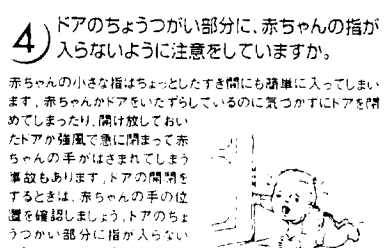 4 ドアのちょうつがい部分に、赤ちゃんの指が
入らないように注意をしていますか。
赤ちゃんの小さな指はちょっとしたすき間にも簡単に入ってしまい
ます。赤ちゃんがドアをいたずらしているのに気づかずにドアを閉
めてしまったり、開け放しておい
たドアが強風で急に閉まって赤
ちゃんの手がはさまれてしまう
事故もあります。ドアの開閉を
するときは、赤ちゃんの手の位
置を確認しましょう。ドアのちょ
うつがい部分に指が入らない